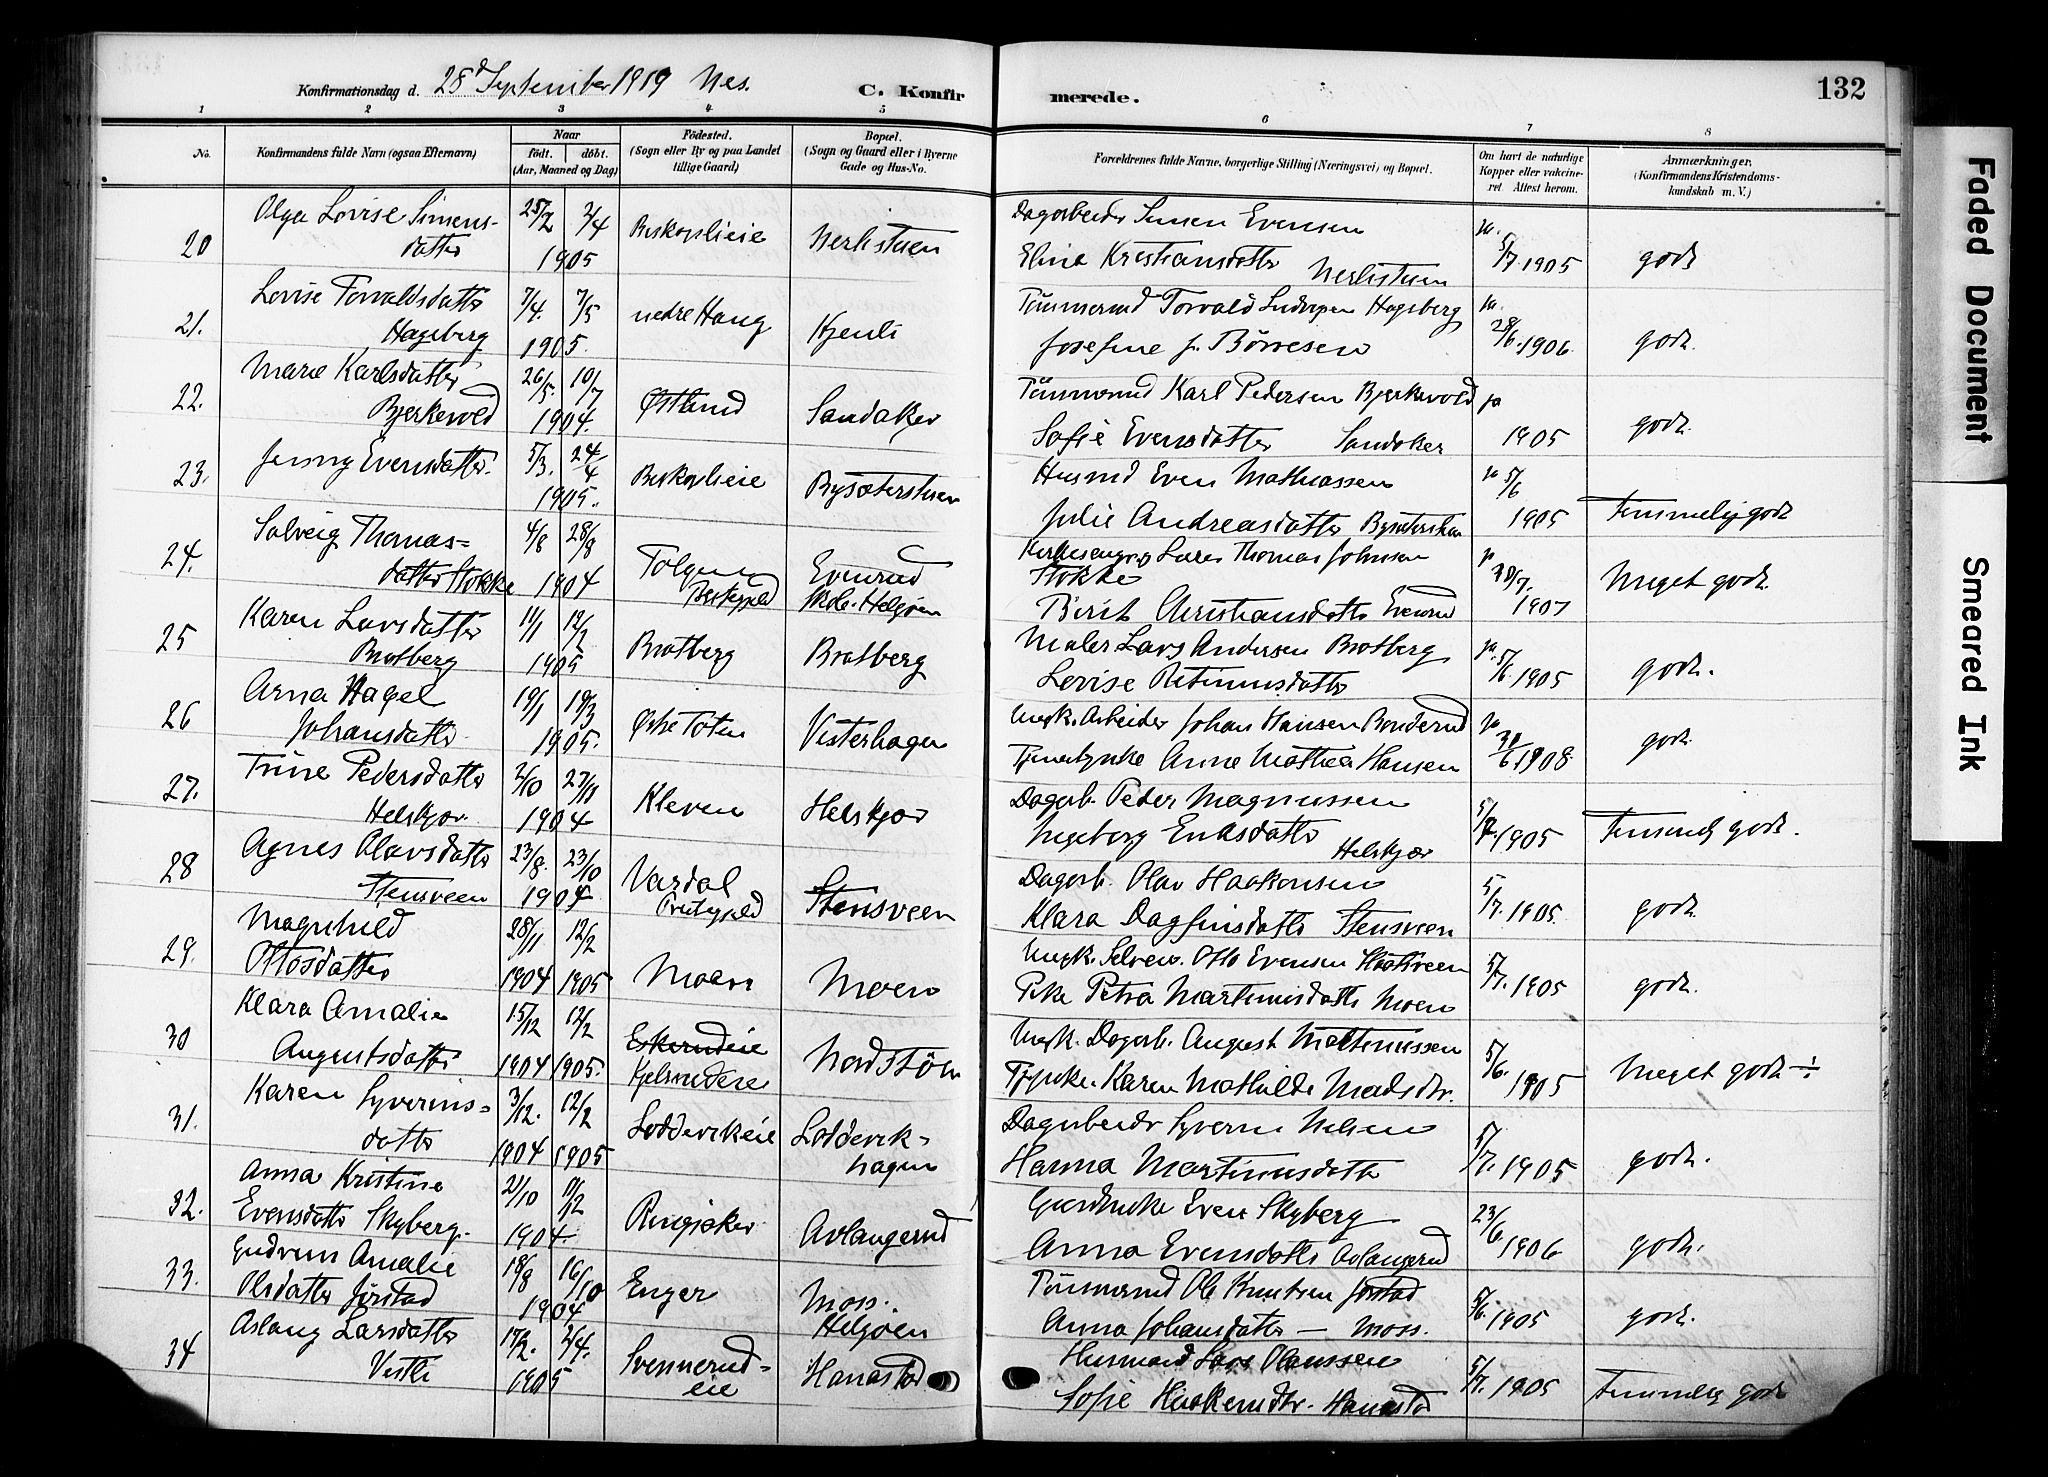 Konfirmationsdag d. 28d September 1919 Nes.
C. Konfirmerede.
132
1 2 3 4 5 6 7 8
No.
Konfirmandens fulde Navn (ogsaa Efternavn)
Naar
födt. döbt.
(Aar, Maaned og Dag)
Födested.
(Sogn eller By og paa Landet
tillige Gaard)
Bopæl.
(Sogn og Gaard eller i Byerne
Gade og Hus-No.
Forældrenes fulde Navne, borgerlige Stilling (Næringsvei) og Bopæl.
Om havt de naturlige
Kopper eller vakcine-
ret Attest herom.
Anmærkninger,
(Konfirmandens Kristendoms-
kundskab m. V.)
Olga Lovise Simens- 25/2 2/4 Biskoplieie Nerlistuen Dagarbeider Simen Evensen ja.
20 datter 1905 Elina Kristiansdatter Nerlistuen 5/7 1905 godt
Lovise Torvaldsdatter 7/4. 7/5 nedre Haug Kjenli Tømmermd Torvald Ludvigsen Hageberg ja.
21. Hageberg 1905. Josefine f. Børresen 28/6. 1906. godt.
Marie Karlsdatter 26/5. 10/7 Østlund Sandaker Tømmermd Karl Pedersen Bjerkevold ja
22. Bjerkevold 1904. Sofie Evensdatter Sandaker 1905 godt.
Jenny Evensdatter. 5/3. 24/4 Biskoplieie Bysæterstuen Husmd Even Mathiassen ja 5/6
23. 1905. Julie Andreasdatter Bysæterstuen 1905 Temmelig godt
Solveig Thomas= 4/8 28/8 Tolgen Evenrud Kirkesanger Lars Thomas Johnsen ja
24. datter Stokke 1904 Prestegjeld Helgøen Stokke 1907 Meget godt.
Birit Christiansdatter Evenrud
Karen Larsdatter 11/1 12/2 Bratberg Bratberg Maler Lars Andersen Bratberg ja.
25 Bratberg 1905 Lovise 5/6. 1905 godt.
Arna Hagel 19/1 19/3 Østre Toten Vesterhagen Ungk. Arbeider Johan Hansen Bonderud ja
26 Johansdatter 1905. Anne Mathea Hansen 1908. godt.
Trine Pedersdatter 2/10 27/11 Kleven Helskjør Dagarb. Peder Magnussen
27. Helskjør. 1904 Ingeborg Eriksdatter Helskjær 5/7. 1905 Temmelig godt.
Agnes Olavsdatter 23/8. 23/10 Vardal Stensveen Dagarb. Olav Haakonsen
28 Stensveen 1904 Prestegjeld Klara Dagfinsdatter Stensveen 5/7. 1905. godt.
Magnhild 28/11 12/2 Moen Moen Ungk. Selvei. Otto Evensen
29. Ottosdatter 1904 1905 Pike Petra Martinusdatter Moen 5/7. 1905 godt.
Klara Amalie 15/12 12/2 Eskerudeie Nordstøen Ungk. Dagarb. August Martinussen
30 Augustsdatter 1904 1905. Karen Mathilde Madsdtr. 5/6. 1905 Meget godt ÷
Karen Syverins= 3/12. 12/2 Lodderikeie Lodderik= Dagarbeider Syverin Nelsen
31. datter 1904 1905 hagen Hanna Martinusdatter 5/7. 1905 godt.
Anna Kristine 21/10 11/12 Ringsaker Avlangerud Even Skyberg 23/6
32. Evensdatter Skyberg. 1904. Anna Evensdatter Avlangerud 1906 godt.
Gudrun Amalie 18/8 16/10 Enger Moss. Tømmermd Ole Knutsen Jørstad
33. Olsdatter Jørstad 1904 Helgøen Anna Johansdatter — Moss. 5/6. 1905 godt.
Aslaug Larsdatter 17/2. 2/4. Svennerud= Hanastad Husmand Lars Olaussen
34 Vestli 1905 eie Sofie Hanastad 5/7. 1905 Temmelig godt
Faded Document
Smeared Ink